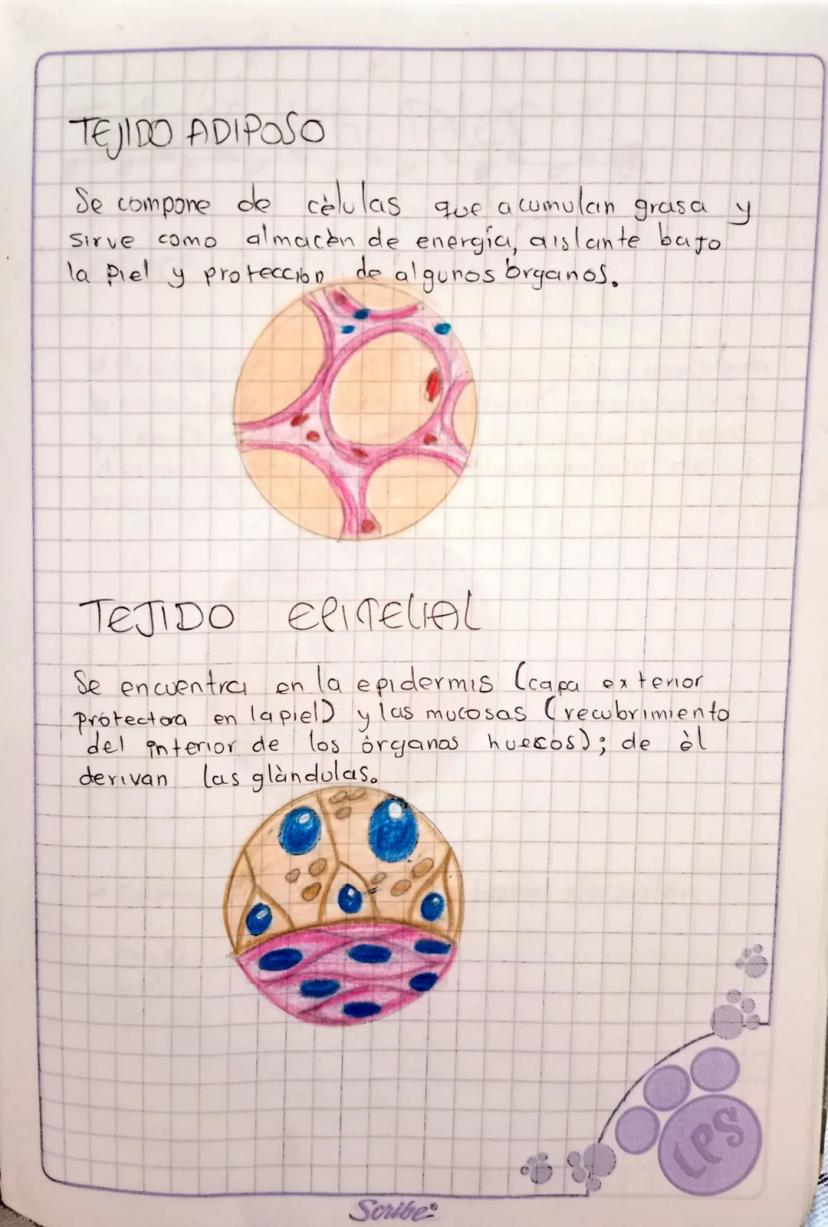 TEJIDO ADIPOSO
Se compone de cèlulas que acumulan grasa y
sirve como almacèn de energía, aislante bajo
la Piel y protección de algunos òrganos.
TEJIDO EPITELIAL
Se encuentra en la epidermis (capa exterior
protectora en la piel) y las mucosas (recubrimiento
del interior de los òrganos huecos); de èl
derivan las glàndulas.
LPS
Scribe